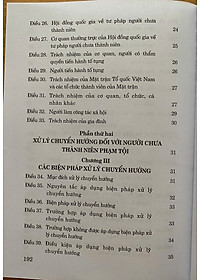 Điều 26. Hội đồng quốc gia về tư pháp người chưa
thành niên 24
Điều 27. Cơ quan thường trực của Hội đồng quốc gia về
tư pháp người chưa thành niên 25
Điều 28. Trách nhiệm của cơ quan, người có thẩm
quyền tiến hành tố tụng
Điều 29. Người tiến hành tố tụng
Điều 30. Trách nhiệm của Mặt trận Tổ quốc Việt Nam
và các tổ chức thành viên của Mặt trận
Điều 31. Trách nhiệm của cơ quan, tổ chức, cá
nhân khác
Điều 32. Người làm công tác xã hội
Điều 33. Trách nhiệm của gia đình
Phần thứ hai
XỬ LÝ CHUYỂN HƯỚNG ĐỐI VỚI NGƯỜI CHƯA
THÀNH NIÊN PHẠM TỘI 31
Chương III
CÁC BIỆN PHÁP XỬ LÝ CHUYỂN HƯỚNG 31
Điều 34. Mục đích xử lý chuyển hướng
Điều 35. Nguyên tắc áp dụng biện pháp xử lý
chuyển hướng
Điều 36. Biện pháp xử lý chuyển hướng
Điều 37. Trường hợp áp dụng biện pháp xử lý
chuyển hướng
Điều 38. Trường hợp không được áp dụng biện pháp xử lý
chuyển hướng
Điều 39. Điều kiện áp dụng biện pháp xử lý
chuyển hướng
192